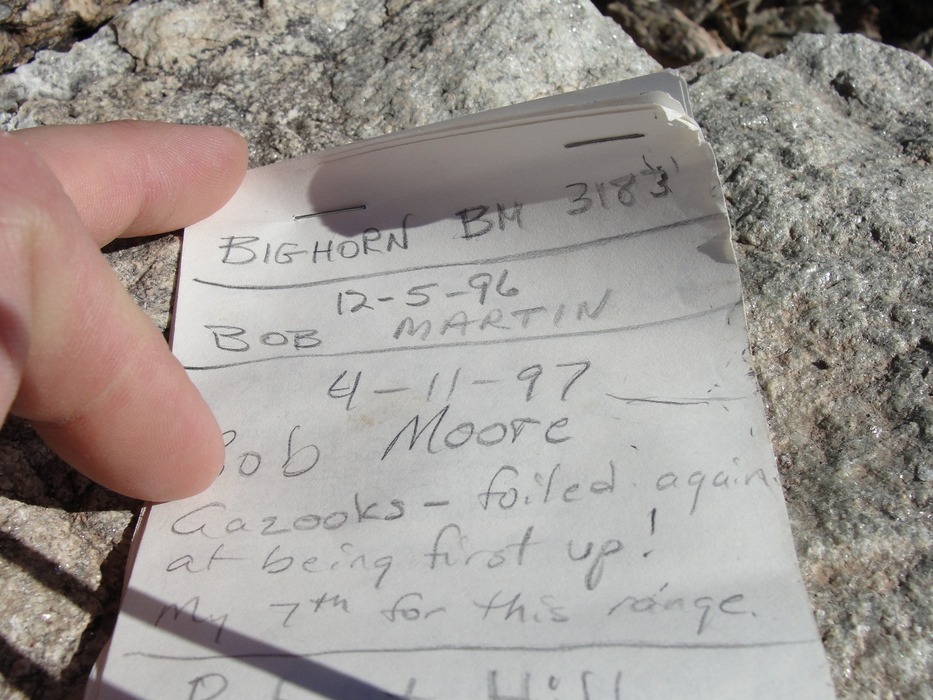 BIGHORN BM 3183'
12-5-96
BOB MARTIN
4-11-97
Bob Moore
Gazooks - foiled again
at being first up!
My 7th for this range.
Hill